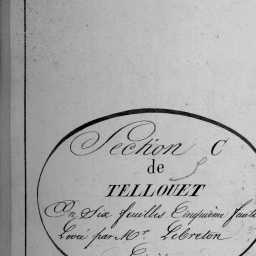 Section C
de
TELLOUET
En Six feuilles Cinquième feuille
Levée par Mr. LeBreton